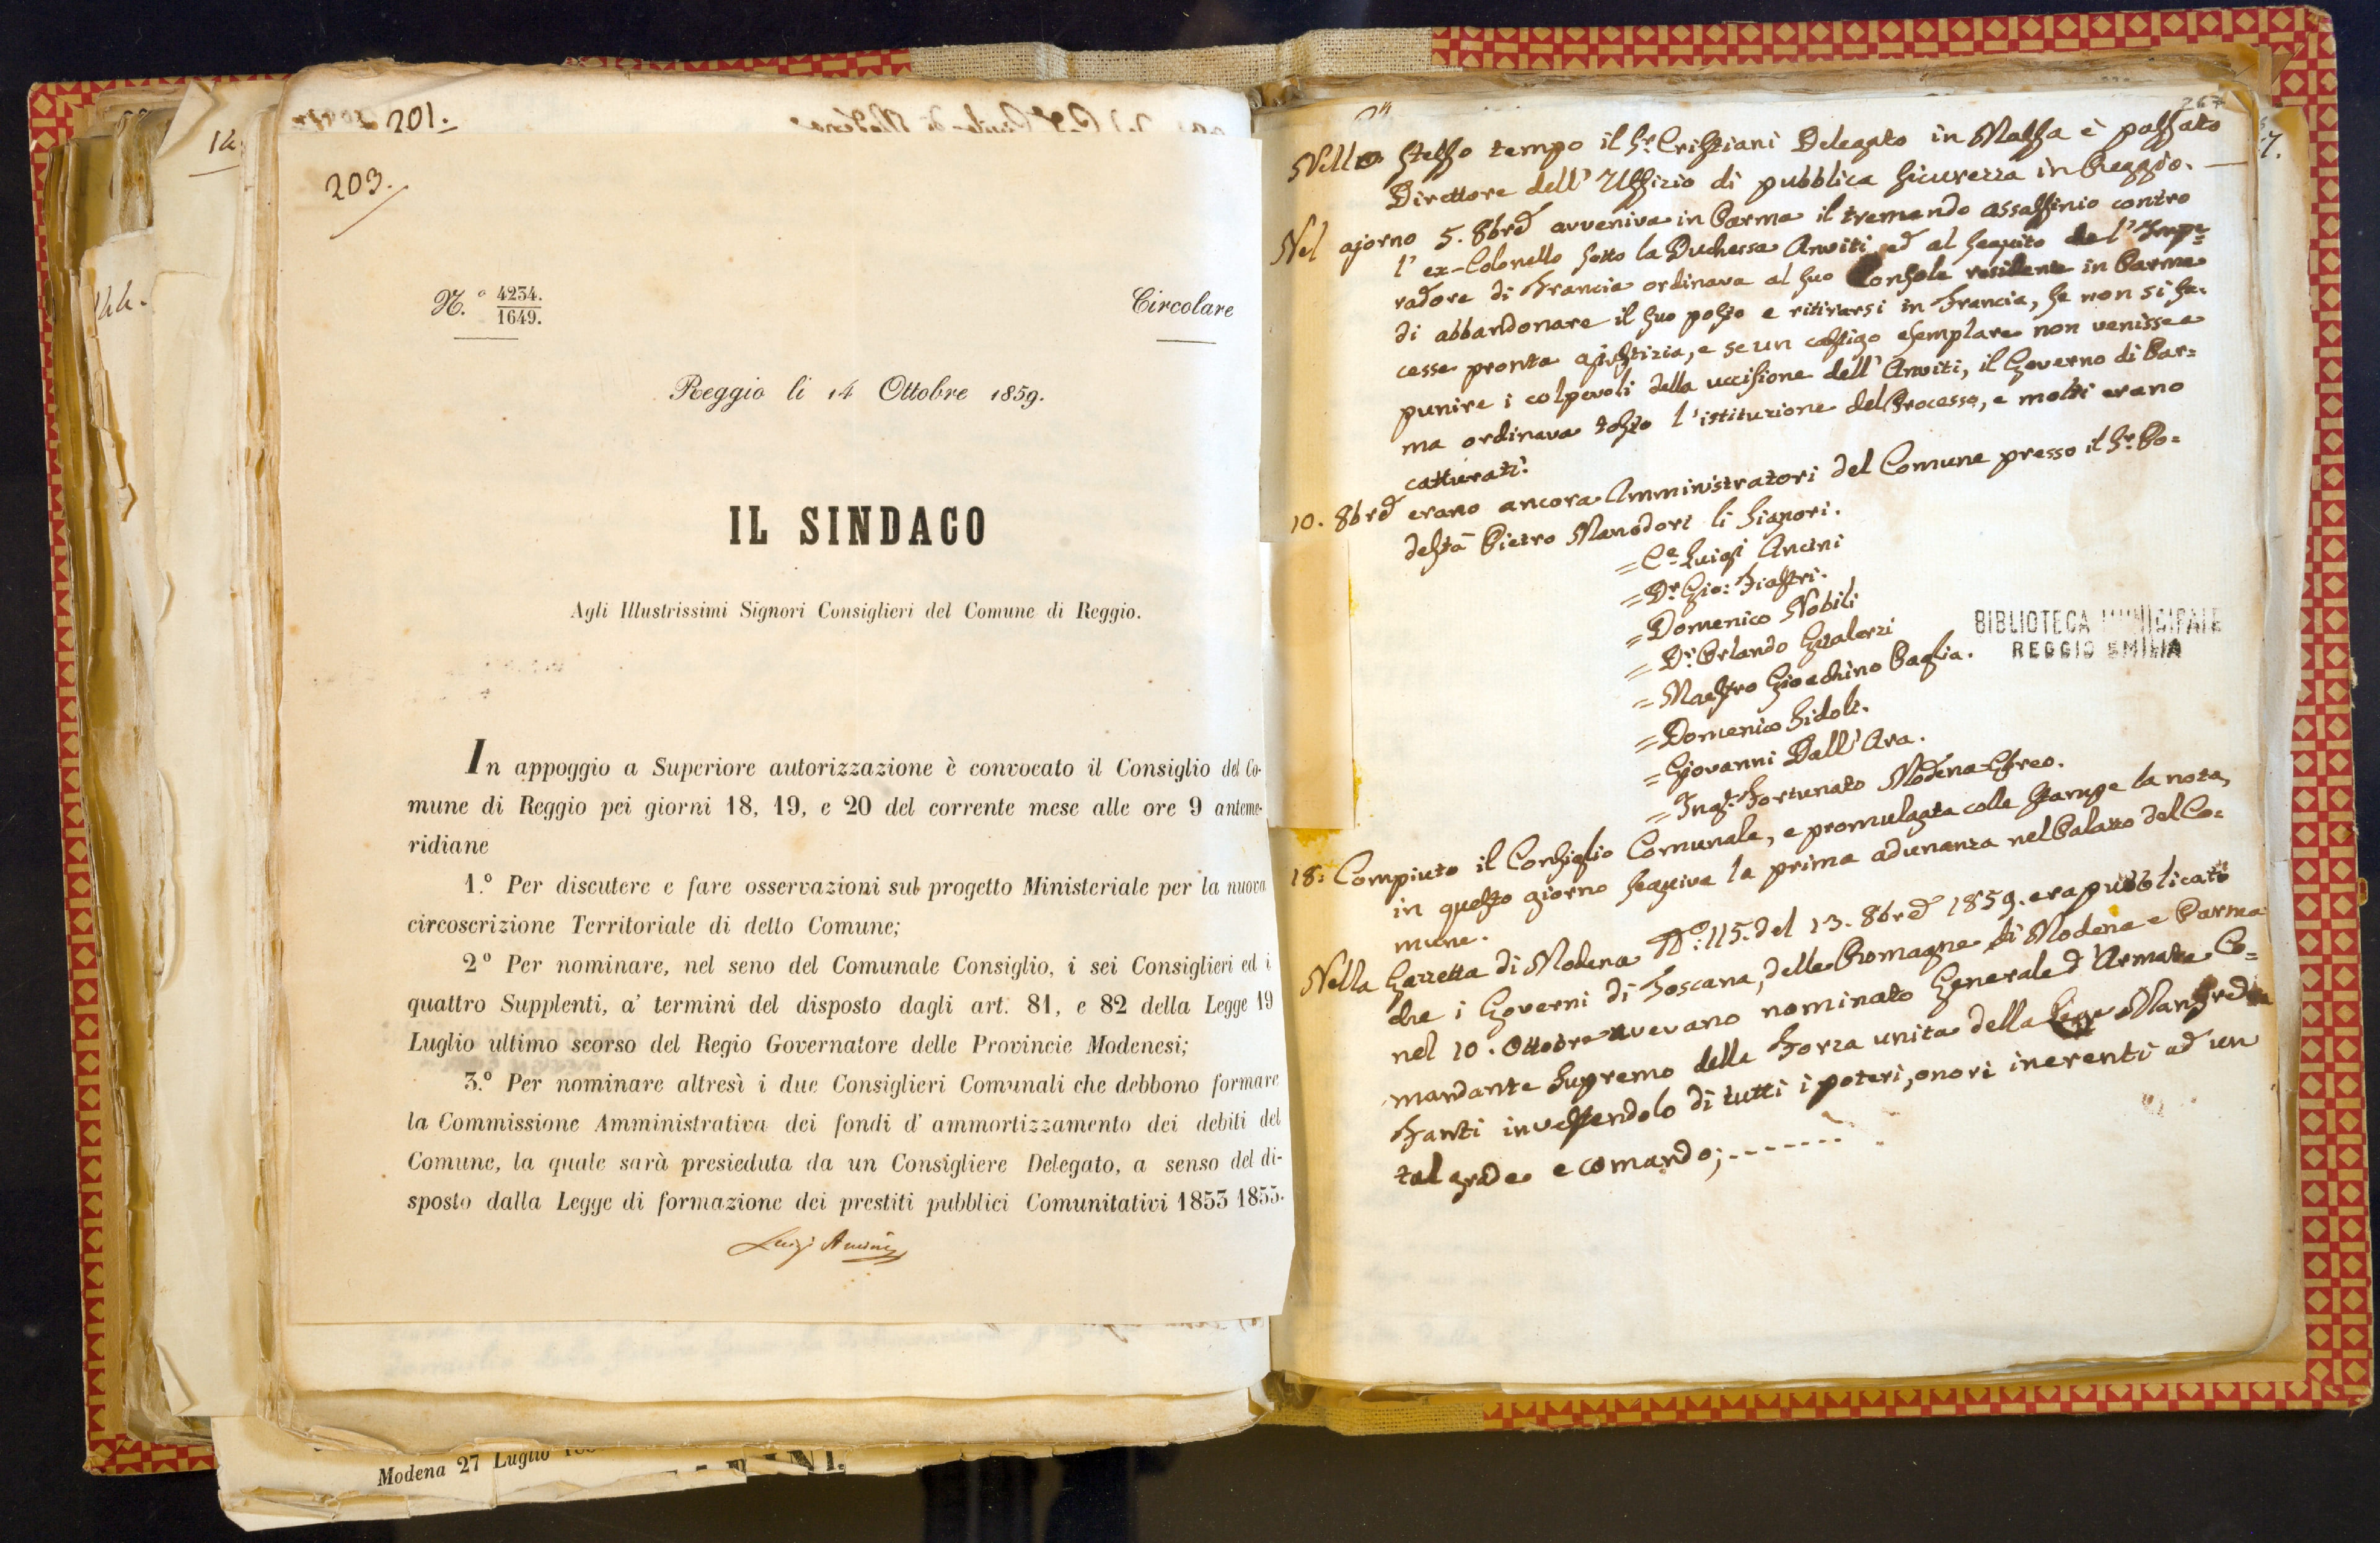 201.
203.
N.° 4234.
1649.
Circolare
Reggio li 14 Ottobre 1859.
IL SINDACO
Agli Illustrissimi Signori Consiglieri del Comune di Reggio.
In appoggio a Superiore autorizzazione è convocato il Consiglio del Co-
mune di Reggio pei giorni 18, 19, e 20 del corrente mese alle ore 9 anteme-
ridiane
1.° Per discutere e fare osservazioni sul progetto Ministeriale per la nuova
circoscrizione Territoriale di detto Comune;
2° Per nominare, nel seno del Comunale Consiglio, i sei Consiglieri ed i
quattro Supplenti, a' termini del disposto dagli art. 81, e 82 della Legge 19
Luglio ultimo scorso del Regio Governatore delle Provincie Modenesi;
3.° Per nominare altresì i due Consiglieri Comunali che debbono formare
la Commissione Amministrativa dei fondi d' ammortizzamento dei debiti del
Comune, la quale sarà presieduta da un Consigliere Delegato, a senso del di-
sposto dalla Legge di formazione dei prestiti pubblici Comunitativi 1853 1855.
Luigi Ancini
Modena 27 Luglio
267
Nello stesso tempo il Sr. Cristiani Delegato in Massa è passato
Direttore dell' Uffizio di pubblica sicurezza in Reggio.
Nel giorno 5. 8bre avveniva in Parma il tremendo assassinio contro
l' ex-Colonello sotto la Duchessa Anviti ed al seguito del l' Impe=
radore di Francia ordinava al suo Console residente in Parma
di abbandonare il suo posto e ritirarsi in Francia, se non si fa-
cesse pronta giustizia, e se un castigo esemplare non venisse a
punire i colpevoli della uccisione dell' Anviti, il Governo di Par=
ma ordinava tosto l' istituzione del Processo, e molti erano
catturati.
10. 8bre erano ancora Amministratori del Comune presso il Sr. Po=
destà Pietro Manodori li Signori.
= Ce. Luigi Ancini
= Dr. Gio: Fiastri.
= Domenico Nobili
= Dr. Orlando Gualerzi
= Maestro Gioachino Paglia.
= Domenico Sidoli.
= Giovanni Dall' Ara.
= Ingr. Fortunato Modena Ebreo.
BIBLIOTECA MUNICIPALE
REGGIO EMILIA
18: Compiuto il Consiglio Comunale, e promulgata colle stampe la nota,
in questo giorno seguiva la prima adunanza nel Palazzo del Co=
mune.
Nella Gazzetta di Modena No. 115. del 13. 8bre 1859. era pubblicato
che i Governi di Toscana, delle Romagne di Modena e Parma
nel 10. Ottobre avevano nominato Generale d' Armata Co=
mandante Supremo della Forza unita della Lega Manfredo
Fanti investendolo di tutti i poteri, onori inerenti ad un
tal grado e comando; -------